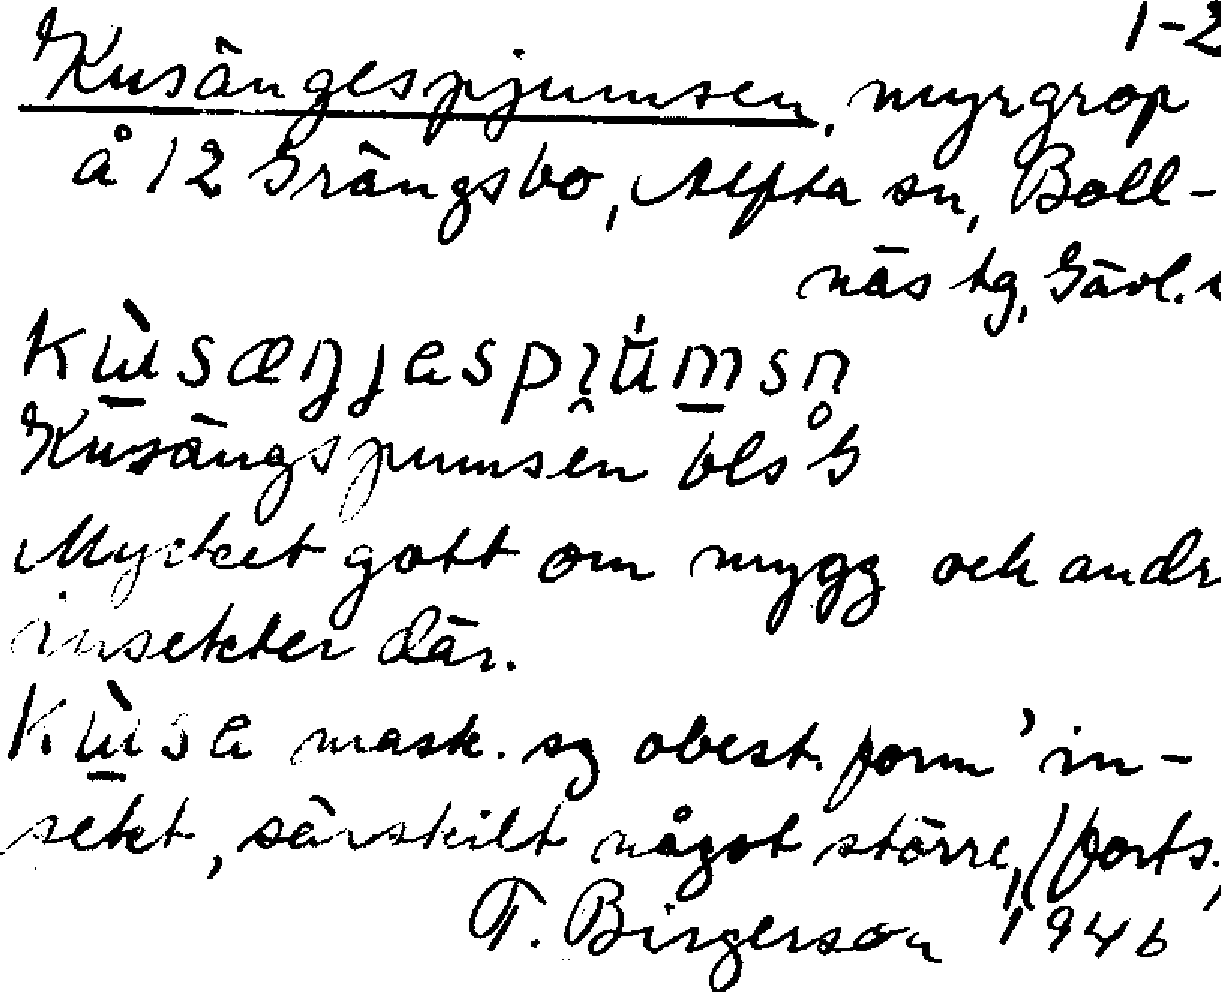 1-2
Kusängespjumsen, myrgrop
å 12 Grängsbo, Alfta sn, Boll-
näs tg, Gävl.
Kusängspjumsen bls G
Mycket gott om mygg och andr
insekter där.
mask. sg obest. form 'in-
sekt, särskilt något större, (forts.)
T. Birgerson 1946